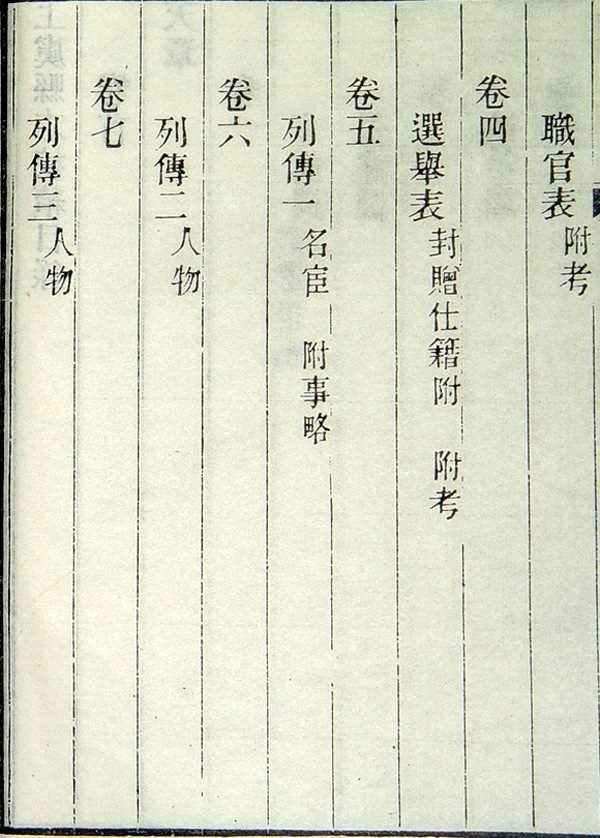 職官表 附考
卷四
選舉表 封贈仕籍附 附考
卷五
列傳一 名宦 附事略
卷六
列傳二 人物
卷七
列傳三 人物